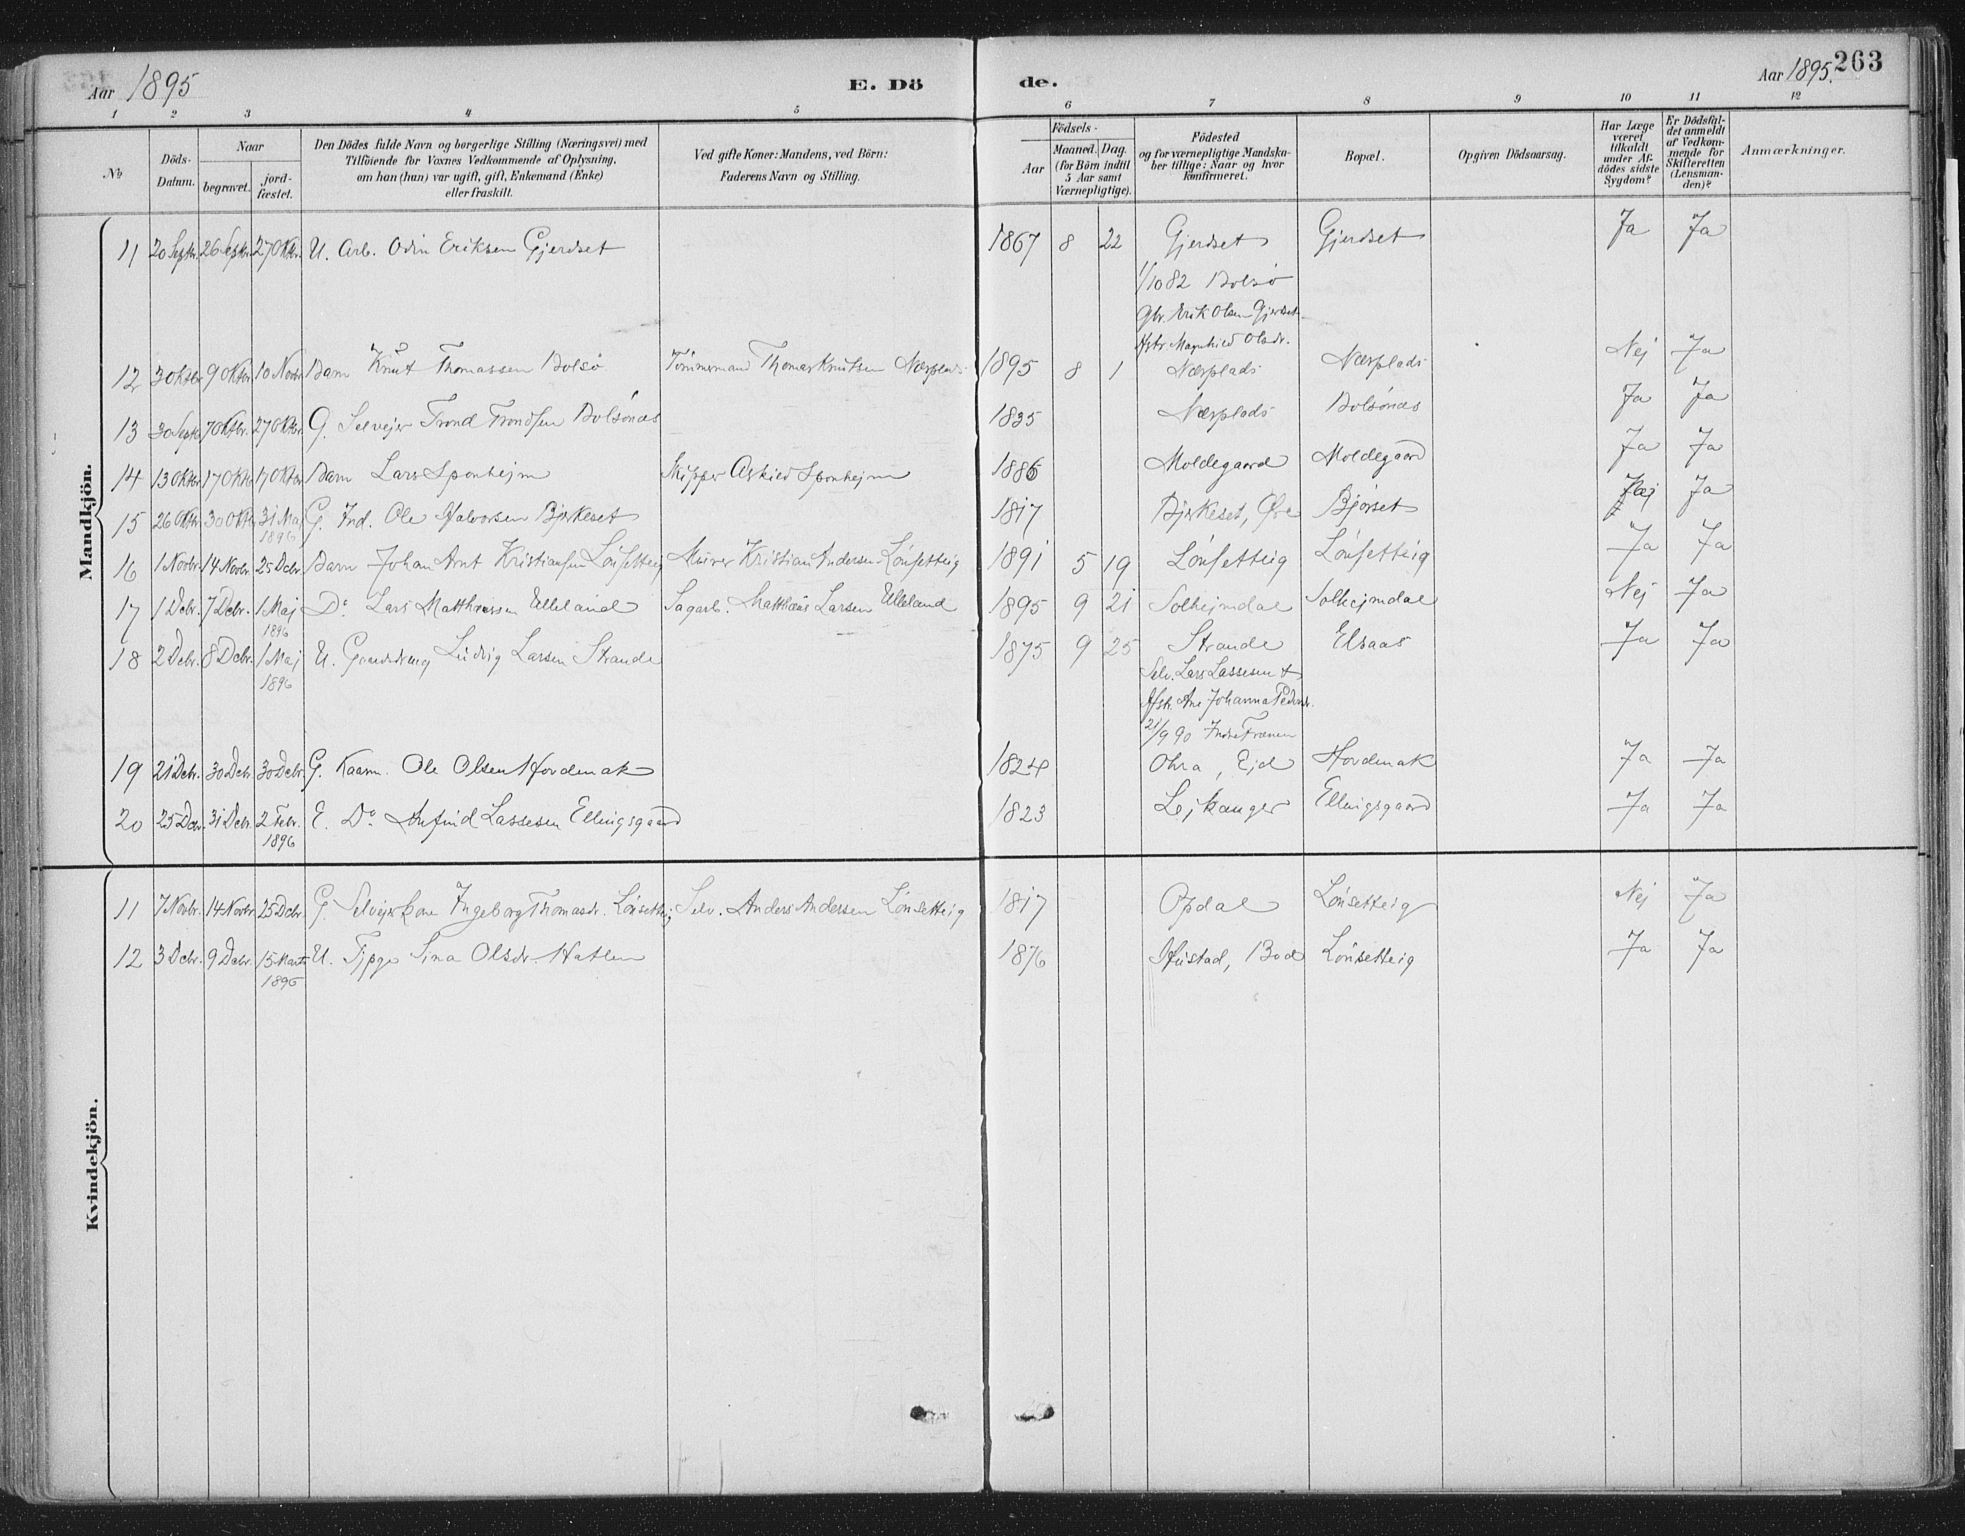 Aar 1895 E. Dö de. Aar 1895. 263
1 2 3 4 5 6 7 8 9 10 11 12
No
Döds-Datum.
Naar
begravet. jord-fæstet.
Den Dödes fulde Navn og borgerlige Stilling (Næringsvei) med
Tilföiende for Voxnes Vedkommende af Oplysning,
om han (hun) var ugift, gift, Enkemand (Enke)
eller fraskilt.
Ved gifte Koner: Mandens, ved Börn:
Faderens Navn og Stilling.
Födsels-
Aar Maaned. Dag.
(for Börn indtil
5 Aar samt
Værnepligtige).
Födested
og for værnepligtige Mandska-
ber tillige: Naar og hvor
konfirmeret.
Bopæl.
Opgiven Dödsaarsag.
Har Læge
været
tilkaldt
under Af-
dödes sidste
Sygdom?
Er Dödsfal-
det anmeldt
af Vedkom-
mende for
Skifteretten
(Lensman-
den)?
Anmærkninger.
Mandkjön.
11 20 Septr. 26 Septr. 27 Oktr. U. Arb. Odin Eriksen Gjerdset 1867 8 22 Gjerdset Gjerdset Ja Ja
1/10 82 Bolsö
Gbr. Erik Olsen Gjerdset
Hstr. Magnhild Olsdr.
12 3 Oktbr. 9 Oktbr. 10 Novbr. Barn Knut Thomassen Bolsö Tömmermand Thomas Knutsen Nærplads 1895 8 1 Nærplads Nærplads Nej Ja
13 30 Septr. 7 Oktbr. 27 Oktbr. G. Selvejer Trond Trondsen Bolsönæs 1835 Nærplads Bolsönæs Ja Ja
14 13 Oktbr. 17 Oktr. 17 Oktbr. Barn Lars Sponhejm Skipper Askild Sponhejm 1886 Moldegaard Moldegaard Ja Ja
15 26 Oktbr. 30 Oktr. 31 Maj G. Ind. Ole Halvorsen Bjerkeset 1817 Bjerkeset, Öre Bjørset Nej Ja
1896
16 1 Novbr. 14 Novbr. 25 Dcbr. Barn Johan Arnt Kristiansen Lönsetteig Murer Kristian Andersen Lönsetteig 1891 5 19 Lönsetteig Lönsetteig Ja Ja
17 1 Dcbr. 7 Dcbr. 1 Maj Do Lars Matthæussen Elleland Sagarb. Matthæus Larsen Elleland 1895 9 21 Solhejmdal Solhejmdal Nej Ja
1896
18 2 Dcbr. 8 Dcbr. 1 Maj U. Gaardsdreng Ludvig Larsen Strande 1875 9 25 Strande Elsaas Ja Ja
1896
Selv. Lars Lassesen &
Hstr. Ane Johanna Pedersdr.
21/9 90 Indre Frænen
19 21 Dcbr. 30 Dcbr. 30 Dcbr. G. Kaarm. Ole Olsen Hovdenak 1824 Ohra, Ejd Hovdenak Ja Ja
20 25 Dcbr. 31 Dcbr. 2 Febr. E. Do Anfind Lassesen Ellingsgaard 1823 Lejkanger Ellingsgaard Ja Ja
1896
Kvindekjön.
11 7 Novbr. 14 Novbr. 25 Dcbr. G. Selvejerkone Ingeborg Thomasdr. Lönsetteig Selv. Anders Andersen Lönsetteig 1817 Opdal Lönsetteig Nej Ja
12 3 Dcbr. 9 Dcbr. 15 Marts U. Tjpge Sina Olsdr. Hatlen 1876 Hustad, Bod Lönsetteig Ja Ja
1896